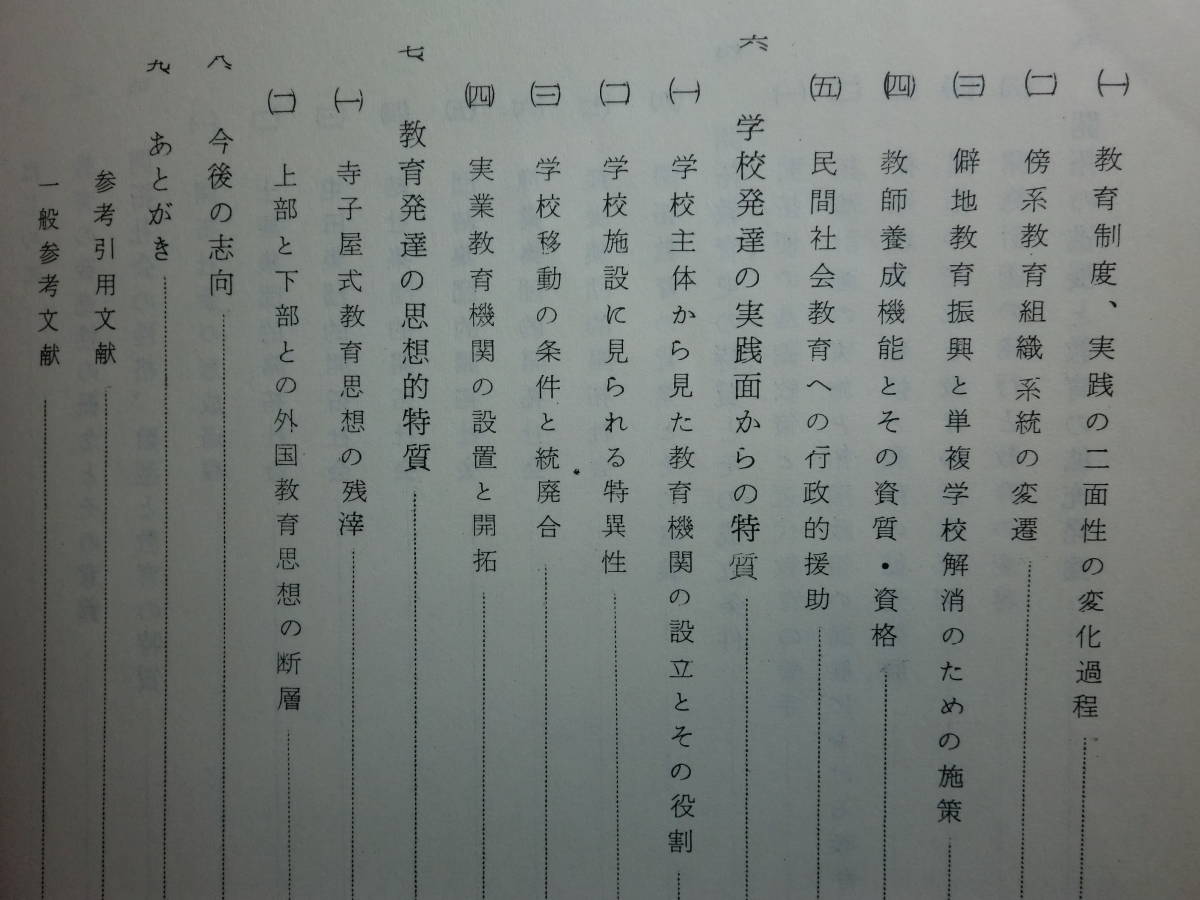 ㈠ 教育制度、実践の二面性の変化過程
㈡ 傍系教育組織系統の変遷
㈢ 僻地教育振興と単複学校解消のための施策
㈣ 教師養成機能とその資質・資格
㈤ 民間社会教育への行政的援助
六、学校発達の実践面からの特質
㈠ 学校主体から見た教育機関の設立とその役割
㈡ 学校施設に見られる特異性
㈢ 学校移動の条件と統廃合
㈣ 実業教育機関の設置と開拓
七、教育発達の思想的特質
㈠ 寺子屋式教育思想の残滓
㈡ 上部と下部との外国教育思想の断層
八、今後の志向
九、あとがき
参考引用文献
一般参考文献